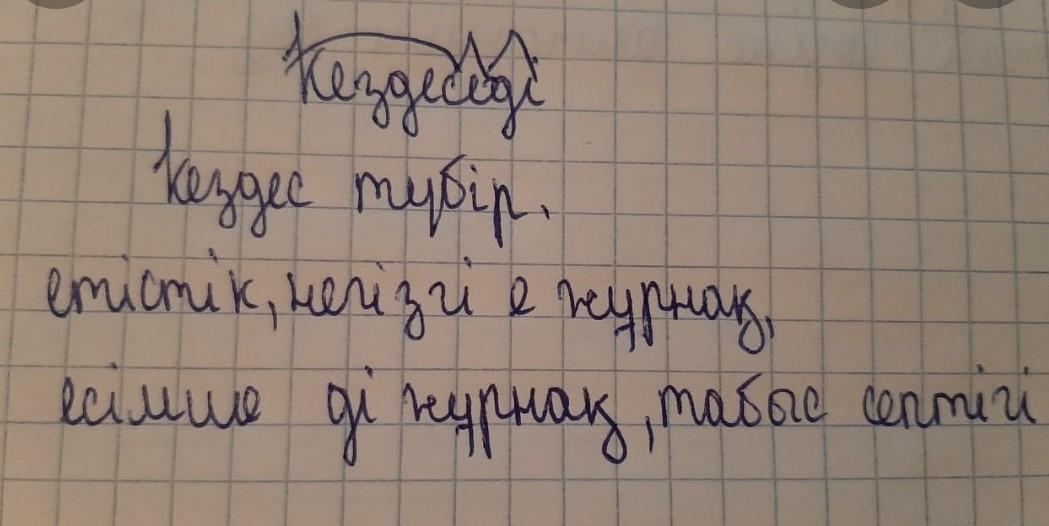 Кездеседі
Кездес түбір.
етістік, негізгі е жұрнақ,
есімше ді жұрнақ, табыс септігі